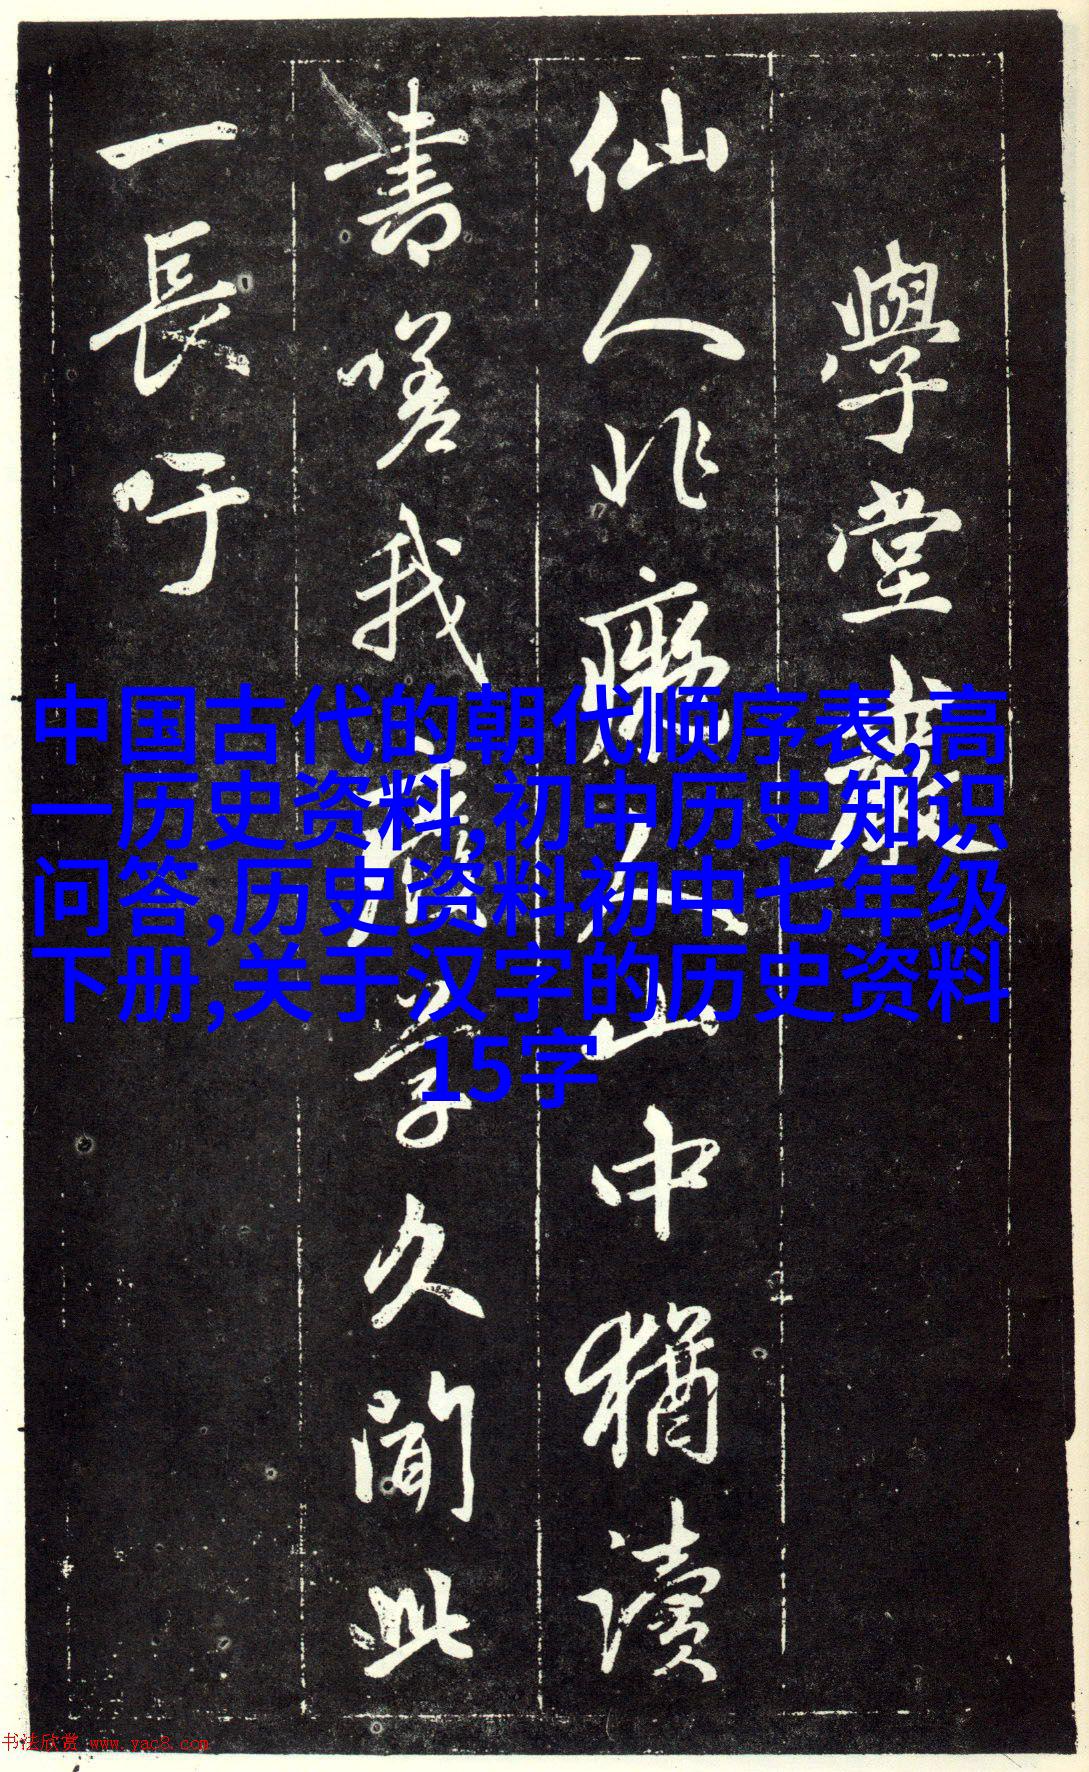 學堂巖
仙人非癡人山中猶讀
書嗟我廢學久聞此
一長吁
中国古代的朝代顺序表,高
一历史资料,初中历史知识
问答,历史资料初中七年级
下册,关于汉字的历史资料
15字
书法欣赏 www.yac8.com